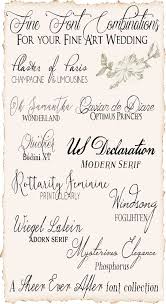 Fine Font Combinations
FOR YOUR FINE ART WEDDING
Plaster of Paris
CHAMPAGNE & LIMOUSINES
Oh Samantha
WONDERLAND
Caviar de Dior
OPTIMUS PRINCEPS
Chicken
Bodoni XT
US Declaration
MODERN SERIF
Rottarity Feminine
PRINTCLEARLY
Windsong
FOGLIHTEN
Wiegel Latein
ADORN SERIF
Mysterious Elegance
Phosphorus
A Sheer Ever After font collection